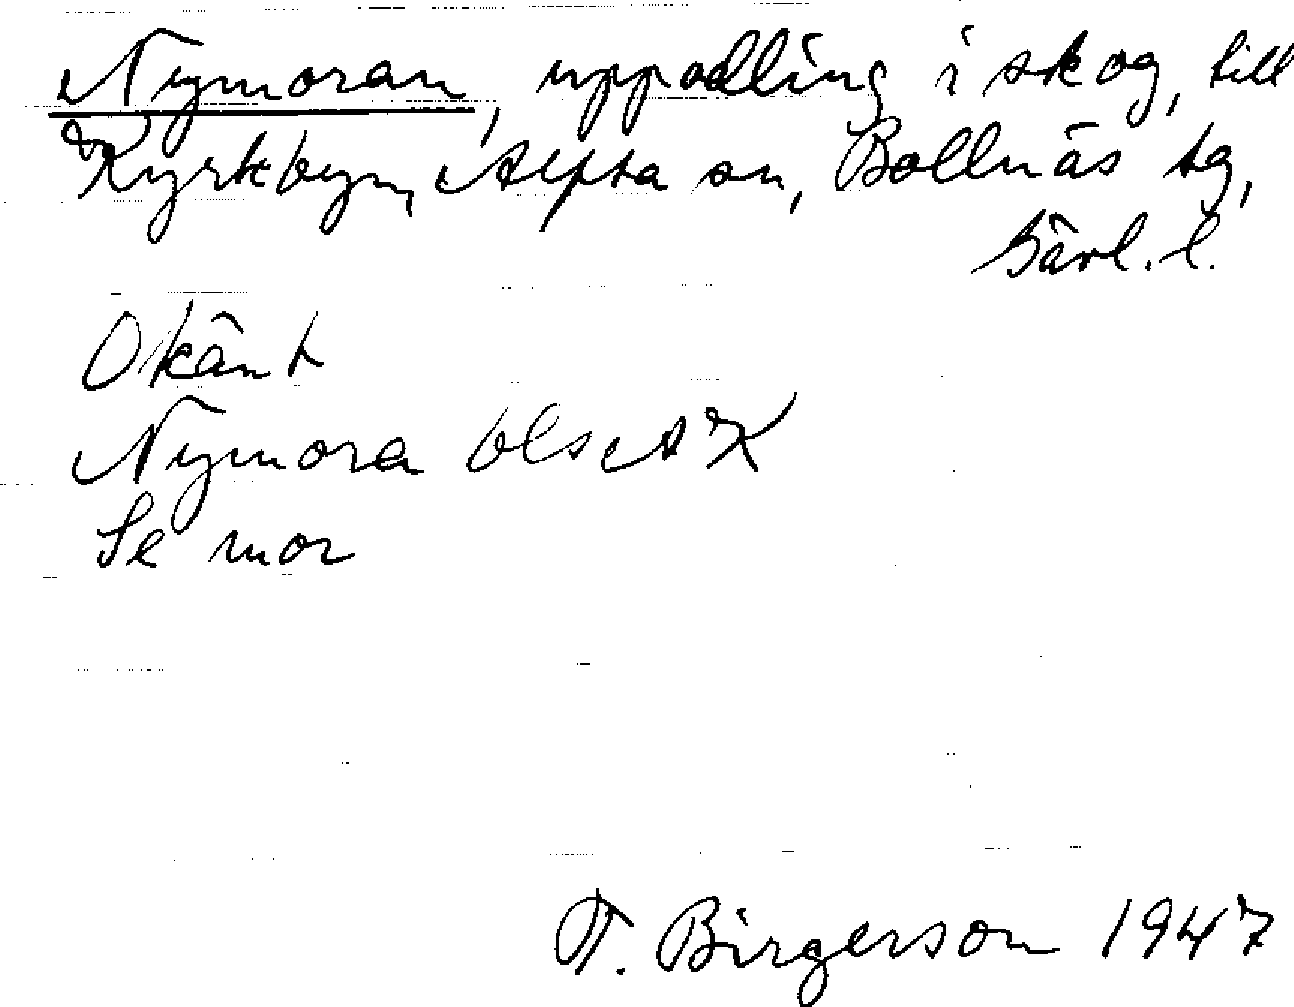 Nymoran, uppodling i skog, till
Kyrkbyn, Alfta sn, Bollnäs tg,
Gävl. l.
Okänt
Nymora blsctK
Se mor
T. Birgerson 1947